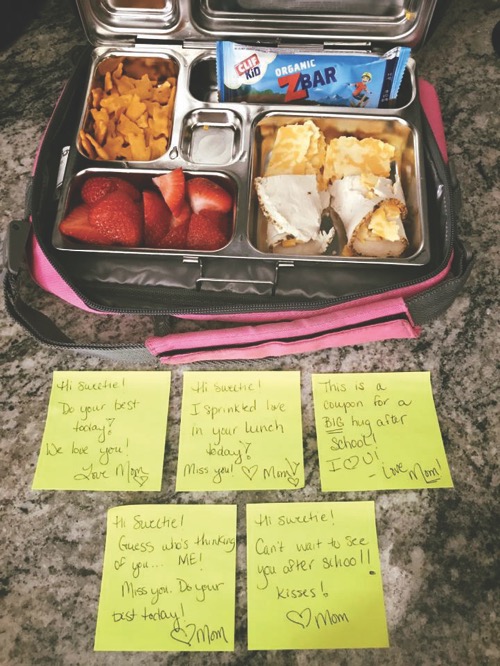 CLIF
KID
ORGANIC
ZBAR
Hi Sweetie!
Do your best
today!
We love you!
Love Mom
Hi Sweetie!
I sprinkled love
in your lunch
today!
Miss you! ♡ Mom
This is a
coupon for a
BIG hug after
School!
I ♡ U!
- Love Mom!
Hi Sweetie!
Guess who's thinking
of you... ME!
Miss you. Do your
best today!
♡ Mom
Hi Sweetie!
Can't wait to see
you after school!!
Kisses!
♡ Mom